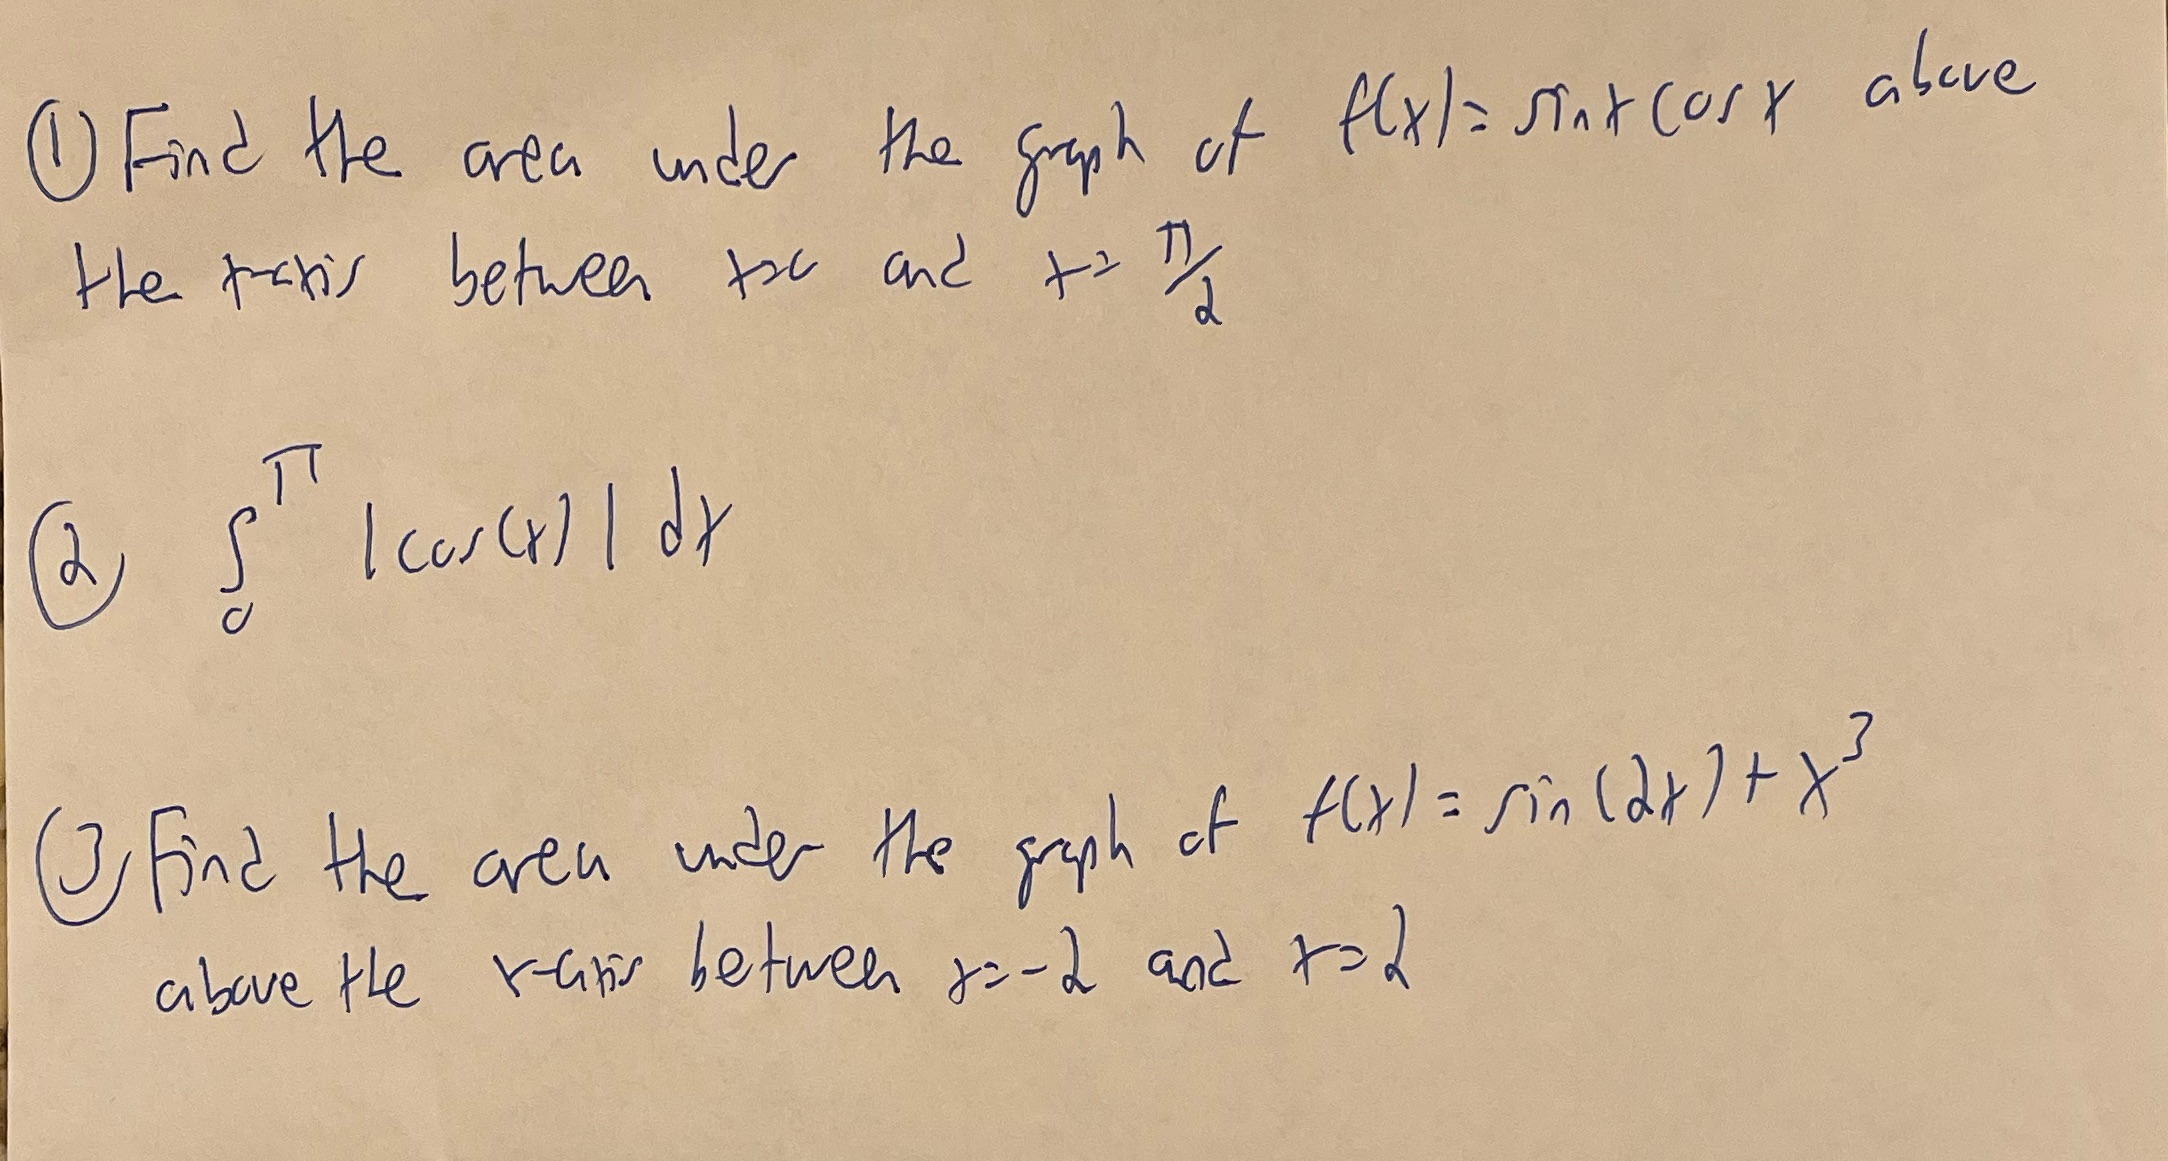 ① Find the area under the graph of f(x) = sin x cos x above
the x-axis between x=0 and x= π/2
② ∫₀^π |cos(x)| dx
③ Find the area under the graph of f(x) = sin(2x) + x³
above the x-axis between x=-2 and x=2